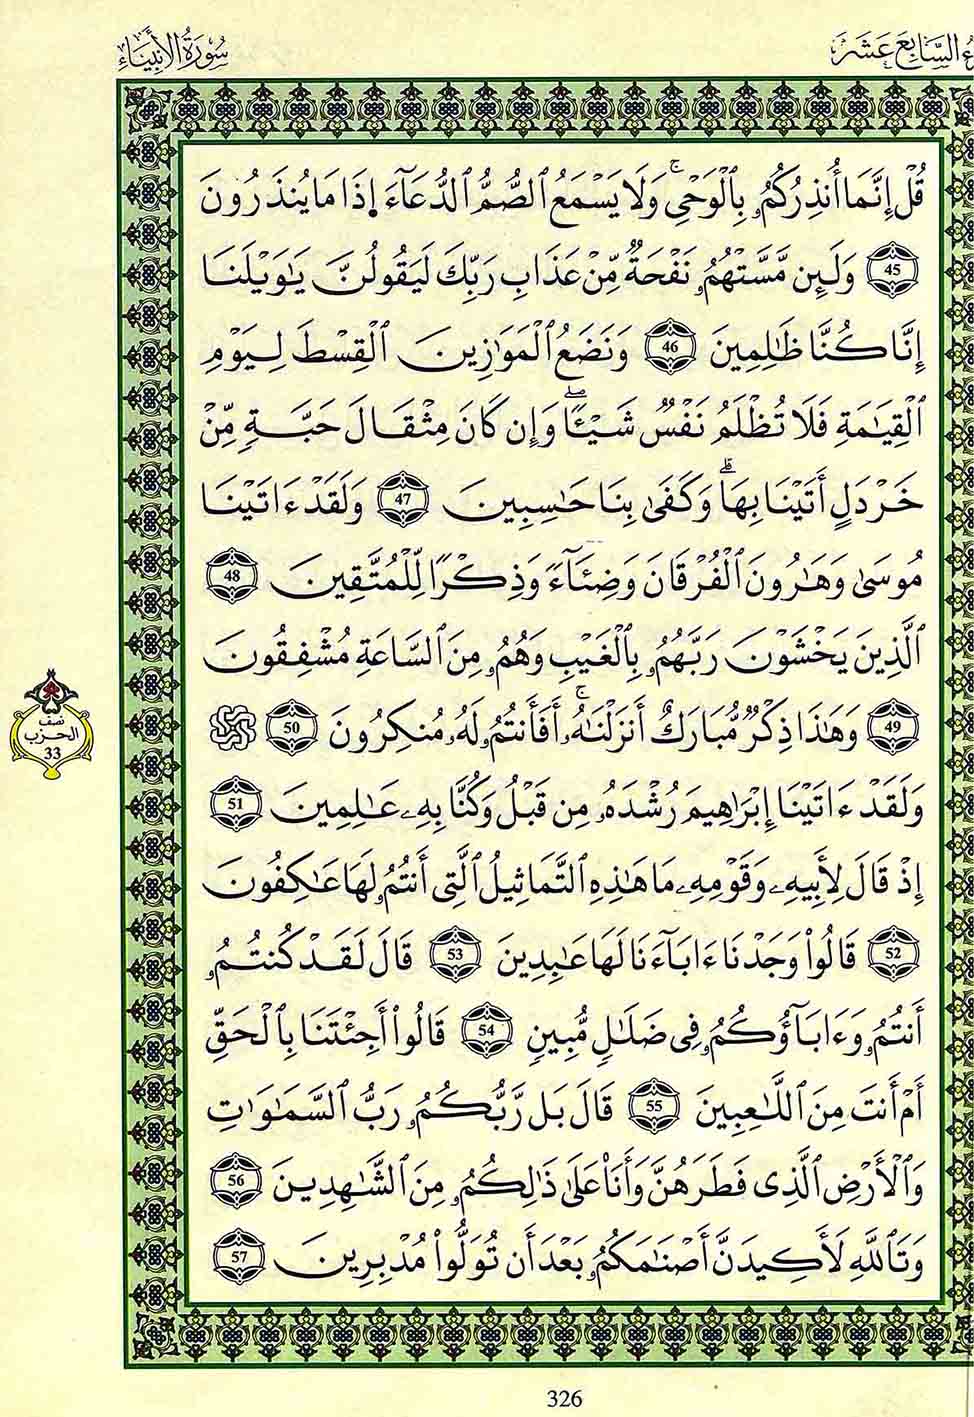 ءُ السَّابِعَ عَشَرَ
سُورَةُ الأَنبِيَاءِ
قُلْ إِنَّمَا أُنذِرُكُمُۥ بِالْوَحْيِۚ وَلَا يَسْمَعُ الصُّمُّ الدُّعَآءَ ا۪ذَا مَا يُنذَرُونَ
45 وَلَئِن مَّسَّتْهُمُۥ نَفْحَةٌ مِّنْ عَذَابِ رَبِّكَ لَيَقُولُنَّ يَٰوَيْلَنَا
إِنَّا كُنَّا ظَٰلِمِينَ 46 وَنَضَعُ الْمَوَٰزِينَ الْقِسْطَ لِيَوْمِ
الْقِيَٰمَةِ فَلَا تُظْلَمُ نَفْسٌ شَيْـًٔاۖ وَإِن كَانَ مِثْقَالَ حَبَّةٍ مِّنْ
خَرْدَلٍ أَتَيْنَا بِهَاۗ وَكَفَىٰ بِنَا حَٰسِبِينَ 47 وَلَقَدْ ءَاتَيْنَا
مُوسَىٰ وَهَٰرُونَ الْفُرْقَانَ وَضِئَآءً وَذِكْرًا لِّلْمُتَّقِينَ 48
الَّذِينَ يَخْشَوْنَ رَبَّهُمُۥ بِالْغَيْبِ وَهُمُۥ مِنَ السَّاعَةِ مُشْفِقُونَ
49 وَهَٰذَا ذِكْرٌ مُّبَارَكٌ أَنزَلْنَٰهُۥۚ أَفَأَنتُمُۥ لَهُۥ مُنكِرُونَ 50
نصف
الحزب
33
وَلَقَدْ ءَاتَيْنَا إِبْرَٰهِيمَ رُشْدَهُۥ مِن قَبْلُ وَكُنَّا بِهِۦ عَٰلِمِينَ 51
إِذْ قَالَ لِأَبِيهِۦ وَقَوْمِهِۦ مَا هَٰذِهِ التَّمَاثِيلُ الَّتِي أَنتُمُۥ لَهَا عَٰكِفُونَ
52 قَالُواْ وَجَدْنَا ءَابَآءَنَا لَهَا عَٰبِدِينَ 53 قَالَ لَقَدْ كُنتُمُۥ
أَنتُمُۥ وَءَابَآؤُكُمُۥ فِي ضَلَٰلٍ مُّبِينٍ 54 قَالُواْ أَجِئْتَنَا بِالْحَقِّ
أَمْ أَنتَ مِنَ اللَّٰعِبِينَ 55 قَالَ بَل رَّبُّكُمُۥ رَبُّ السَّمَٰوَٰتِ
وَالْأَرْضِ الَّذِي فَطَرَهُنَّ وَأَنَا۠ عَلَىٰ ذَٰلِكُمُۥ مِنَ الشَّٰهِدِينَ 56
وَتَاللَّهِ لَأَكِيدَنَّ أَصْنَٰمَكُمُۥ بَعْدَ أَن تُوَلُّواْ مُدْبِرِينَ 57
326